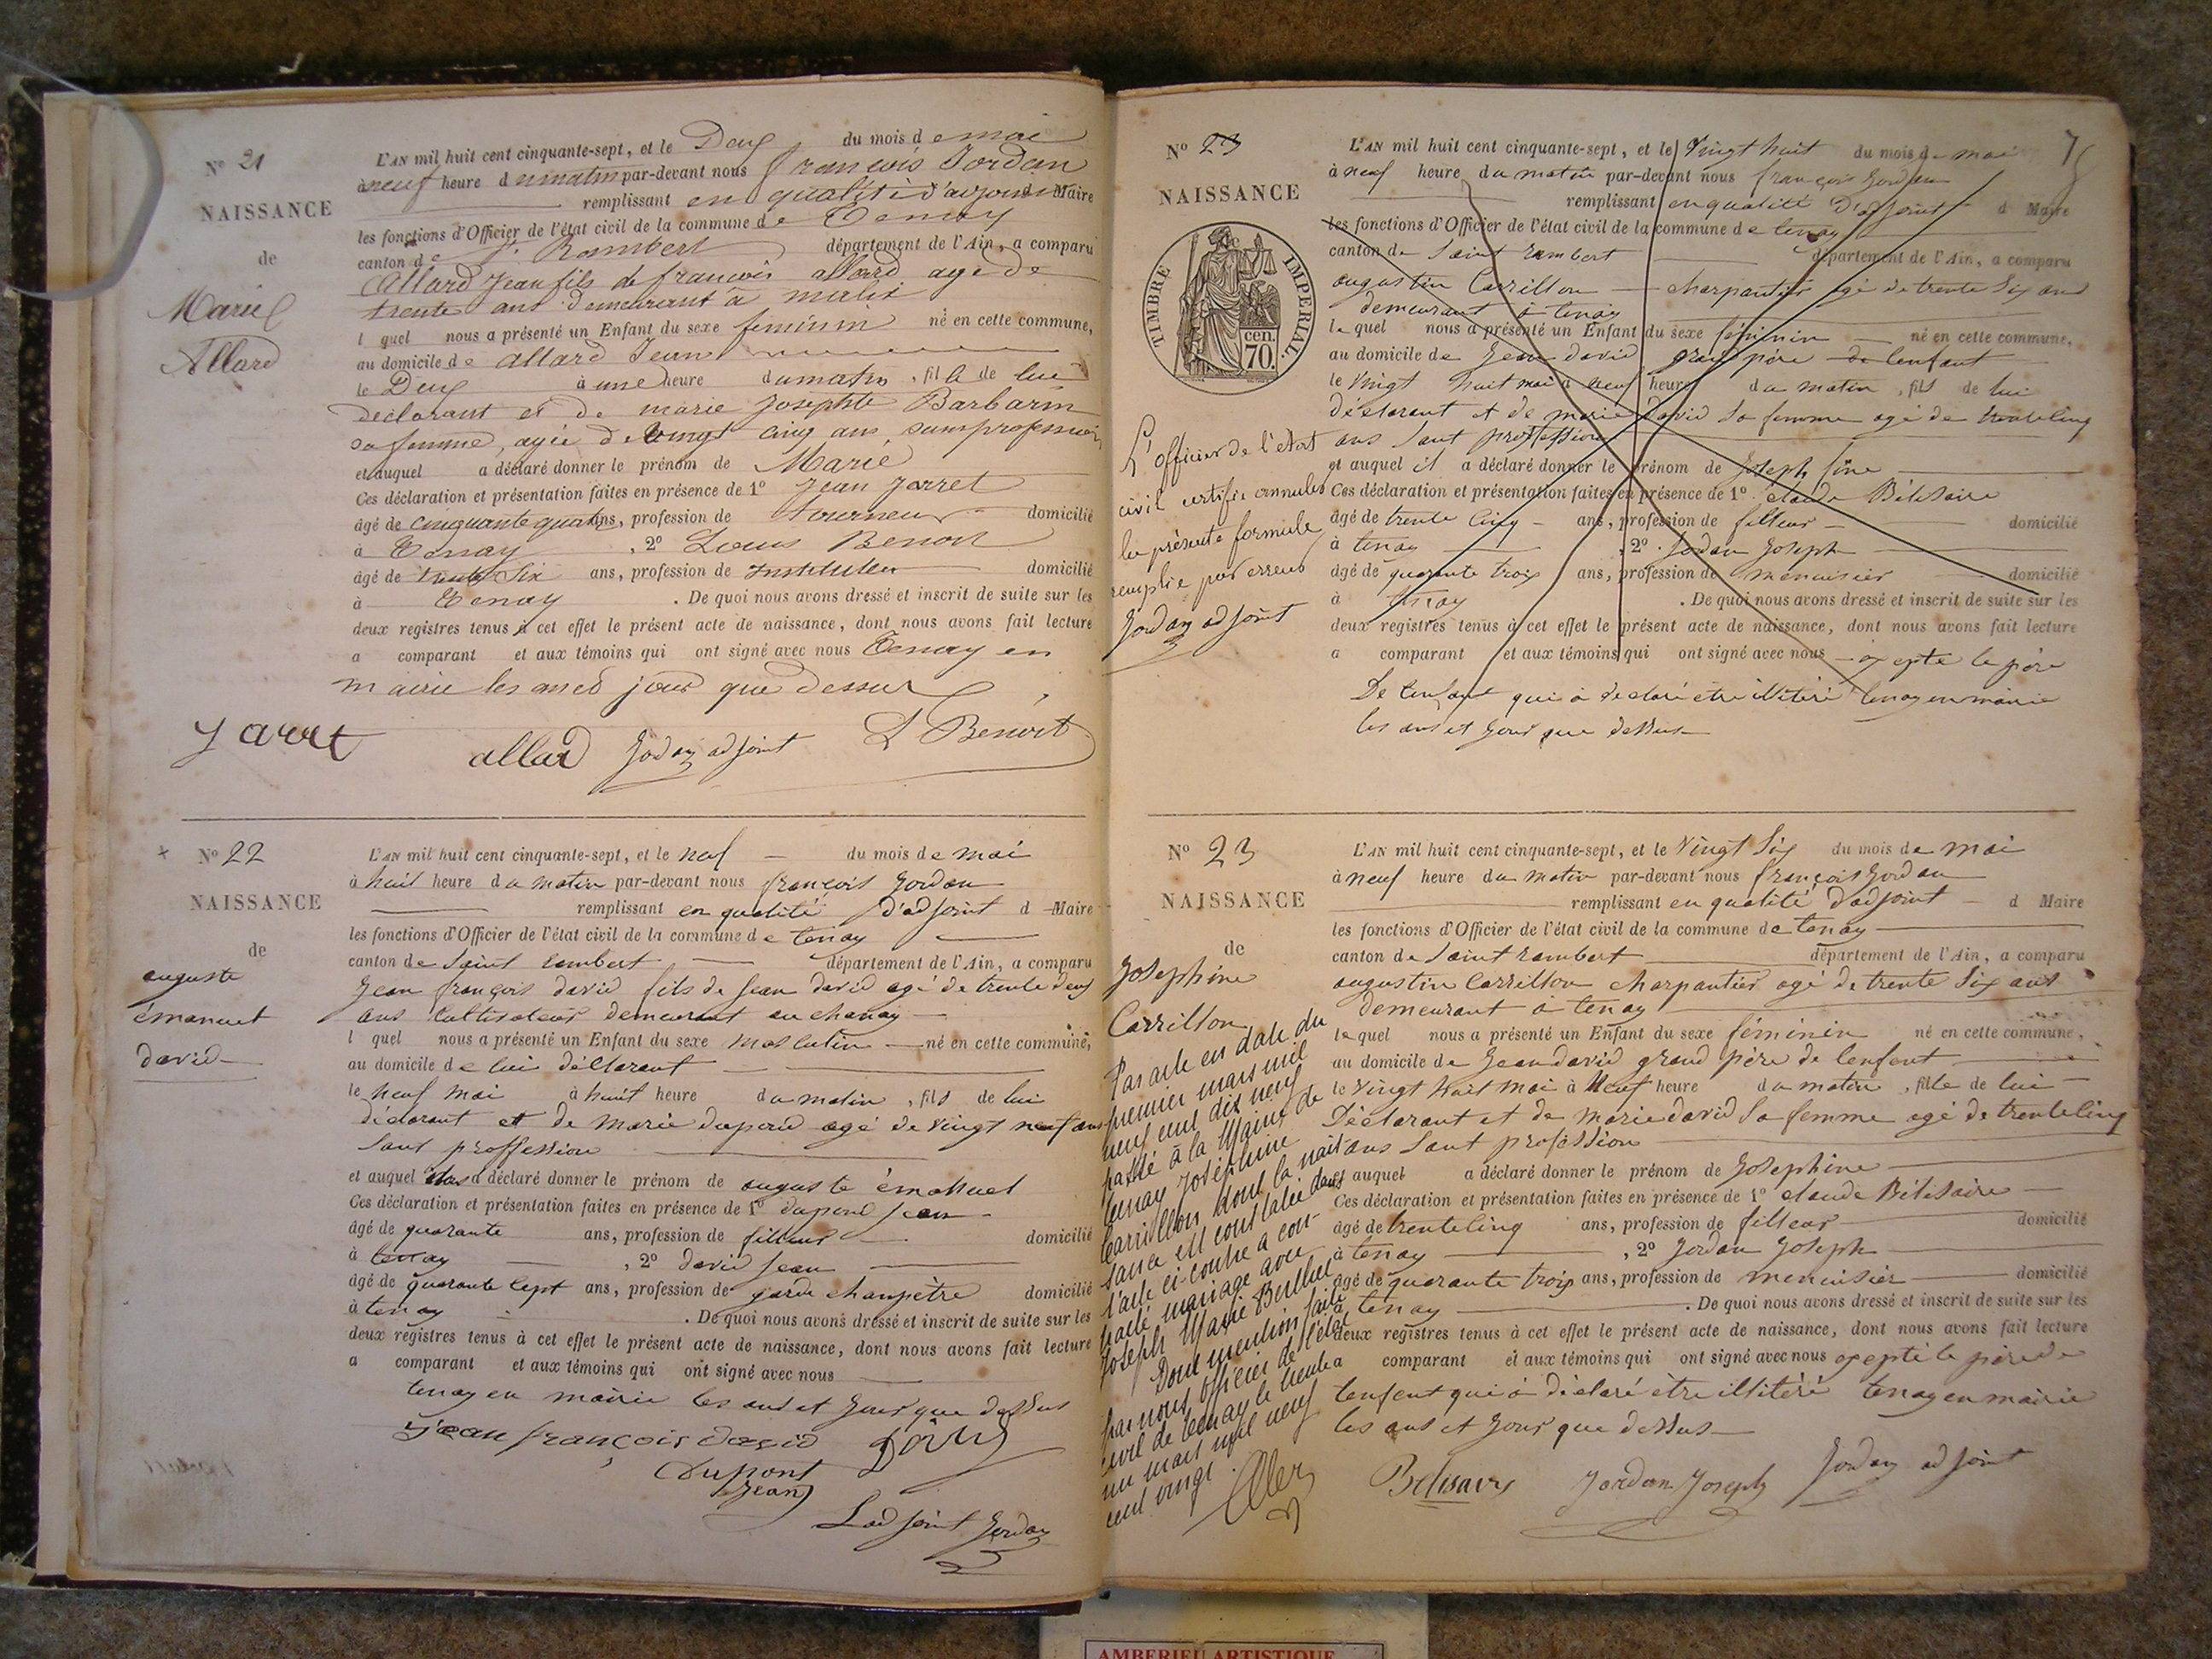 N° 21
NAISSANCE
de
Marie
Allard
L'AN mil huit cent cinquante-sept, et le Deux du mois de mai
à neuf heure du matin par-devant nous françois Jordan
remplissant en qualité d'adjoint d Maire
les fonctions d'Officier de l'état civil de la commune de Tenay
canton de St Rambert département de l'Ain, a comparu
Allard Jean fils de françois allard agé de
trente ans demeurant à malix
l quel nous a présenté un Enfant du sexe feminin né en cette commune,
au domicile de allard Jean
le Deux à une heure du matin, fille de lui
declarant et de marie Josephte Barbarin
sa femme, agée de vingt cinq ans, sans profession
et auquel a déclaré donner le prénom de Marie
Ces déclaration et présentation faites en présence de 1° Jean Jarret
âgé de cinquante quatre ans, profession de tourneur domicilié
à Tenay, 2° Louis Benoit
âgé de trente six ans, profession de Instituteur domicilié
à Tenay. De quoi nous avons dressé et inscrit de suite sur les
deux registres tenus à cet effet le présent acte de naissance, dont nous avons fait lecture
a comparant et aux témoins qui ont signé avec nous Tenay en
mairie les an et jour que dessus
Jarret allard Jordan adjoint L Benoit
N° 22
NAISSANCE
de
auguste
émanuel
david
L'AN mil huit cent cinquante-sept, et le neuf du mois de mai
à huit heure du matin par-devant nous françois Jordan
remplissant en qualité d'adjoint d Maire
les fonctions d'Officier de l'état civil de la commune de tenay
canton de Saint rambert département de l'Ain, a comparu
Jean françois david fils de Jean david agé de trente deux
ans Cultivateur demeurant au chanay
l quel nous a présenté un Enfant du sexe masculin né en cette commune,
au domicile de lui déclarant
le neuf mai à huit heure du matin, fils de lui
déclarant et de Marie dupond agé de vingt neuf ans
sant proffession
et auquel a déclaré donner le prénom de auguste émanuel
Ces déclaration et présentation faites en présence de 1° dupond Jean
âgé de quarante ans, profession de filleur domicilié
à tenay, 2° david Jean
âgé de quarante Sept ans, profession de garde champêtre domicilié
à tenay. De quoi nous avons dressé et inscrit de suite sur les
deux registres tenus à cet effet le présent acte de naissance, dont nous avons fait lecture
a comparant et aux témoins qui ont signé avec nous
tenay en mairie les ans et Jour que dessus
Jean françois david
Dupont
Jean
L'adjoint Jordan
N° 23
NAISSANCE
TIMBRE IMPERIAL
70 cen.
L'officier de l'état
civil certifie annuler
la présente formule
remplie par erreur
Jordan adjoint
L'AN mil huit cent cinquante-sept, et le Vingt huit du mois de mai
à neuf heure du matin par-devant nous françois Jordan
remplissant en qualité D'adjoint d Maire
les fonctions d'Officier de l'état civil de la commune de tenay
canton de Saint rambert département de l'Ain, a comparu
augustin Carrillon charpantier agé de trente Six ans
demeurant à tenay
le quel nous a présenté un Enfant du sexe féminin né en cette commune,
au domicile de Jean david grand père de lenfant
le Vingt huit mai à neuf heure du matin, fils de lui
déclarant et de marie david Sa femme agé de trente cinq
ans Sant proffession
et auquel il a déclaré donner le prénom de Joseph fine
Ces déclaration et présentation faites en présence de 1° claude Bélisaire
âgé de trente Cinq ans, profession de filleur domicilié
à tenay, 2° Jordan Joseph
âgé de quarante trois ans, profession de menuisier domicilié
à tenay. De quoi nous avons dressé et inscrit de suite sur les
deux registres tenus à cet effet le présent acte de naissance, dont nous avons fait lecture
a comparant et aux témoins qui ont signé avec nous exepté le père
De lenfant qui à déclaré être illitéré tenay en mairie
les ans et Jour que dessus
N° 23
NAISSANCE
de
Josephine
Carrillon
Par acte en date du
premier mars mil
neuf cent dix neuf
passé à la Mairie de
Tenay Joséphine
Carrillon dont la nais
sance est constatée dans
l'acte ci-contre a con-
tracté mariage avec
Joseph Marie Berthet
Dont mention faite
par nous officier de l'état
civil de Tenay le trente
un mars mil neuf
cent vingt.
L'AN mil huit cent cinquante-sept, et le Vingt Six du mois de mai
à neuf heure du matin par-devant nous françois Jordan
remplissant en qualité d'adjoint d Maire
les fonctions d'Officier de l'état civil de la commune de tenay
canton de Saint rambert département de l'Ain, a comparu
augustin Carrillon charpantier agé de trente Six ans
demeurant à tenay
le quel nous a présenté un Enfant du sexe féminin né en cette commune,
au domicile de Jean david grand père de lenfant
le Vingt huit mai à Neuf heure du matin, fille de lui
Déclarant et de marie david Sa femme agé de trente cinq
ans Sant profession
et auquel a déclaré donner le prénom de Josephine
Ces déclaration et présentation faites en présence de 1° claude Bélisaire
âgé de trente cinq ans, profession de filleur domicilié
à tenay, 2° Jordan Joseph
âgé de quarante trois ans, profession de menuisier domicilié
à tenay. De quoi nous avons dressé et inscrit de suite sur les
deux registres tenus à cet effet le présent acte de naissance, dont nous avons fait lecture
a comparant et aux témoins qui ont signé avec nous exepté le père de
lenfent qui à déclaré être illitéré tenay en mairie
les ans et Jour que dessus
Jordan Joseph Jordan adjoint
AMBERIEU ARTISTIQUE